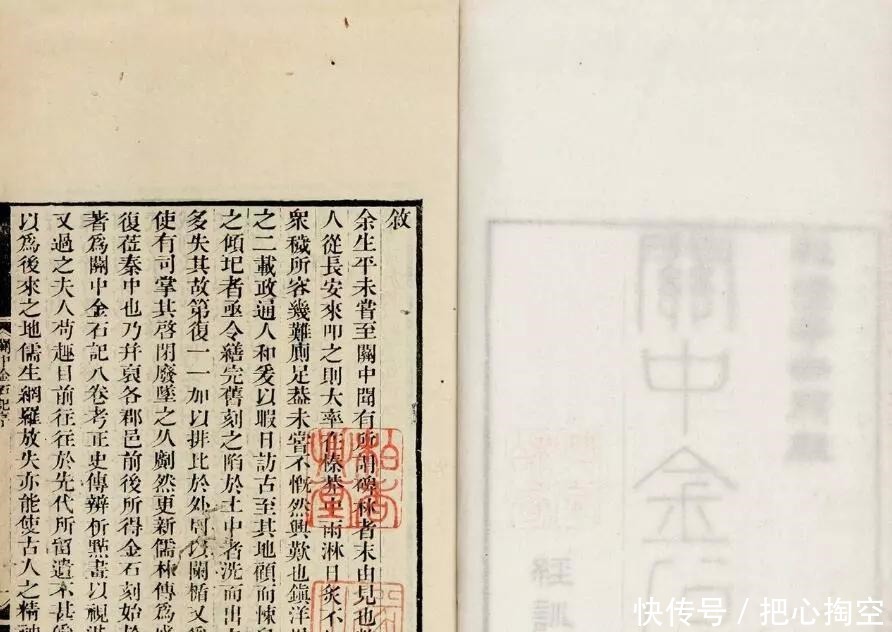 關中金石
經訓
敘
余生平未嘗至關中聞有所謂碑林者末由見也
人從長安來叩之則大率在榛莽中雨淋日炙不
衆穢所容幾難廁足葢未嘗不慨然興歎也鎮洋
之二載政通人和爰以暇日訪古至其地顧而悚
之傾圮者亟令繕完舊刻之陷於土中者洗而出
多失其故第復一一加以排比於外周以闌楯又
使有司掌其啓閉廢墜之久劃然更新儒林傳爲
復莅秦中也乃幷裒各郡邑前後所得金石刻始於
著爲關中金石記八卷考正史傳辨析點畫以視洪
又過之夫人苟趣目前往往於先代所留遺不甚
以爲後來之地儒生網羅放失亦能使古人之精神
關中金石記
快传号 / 把心掏空